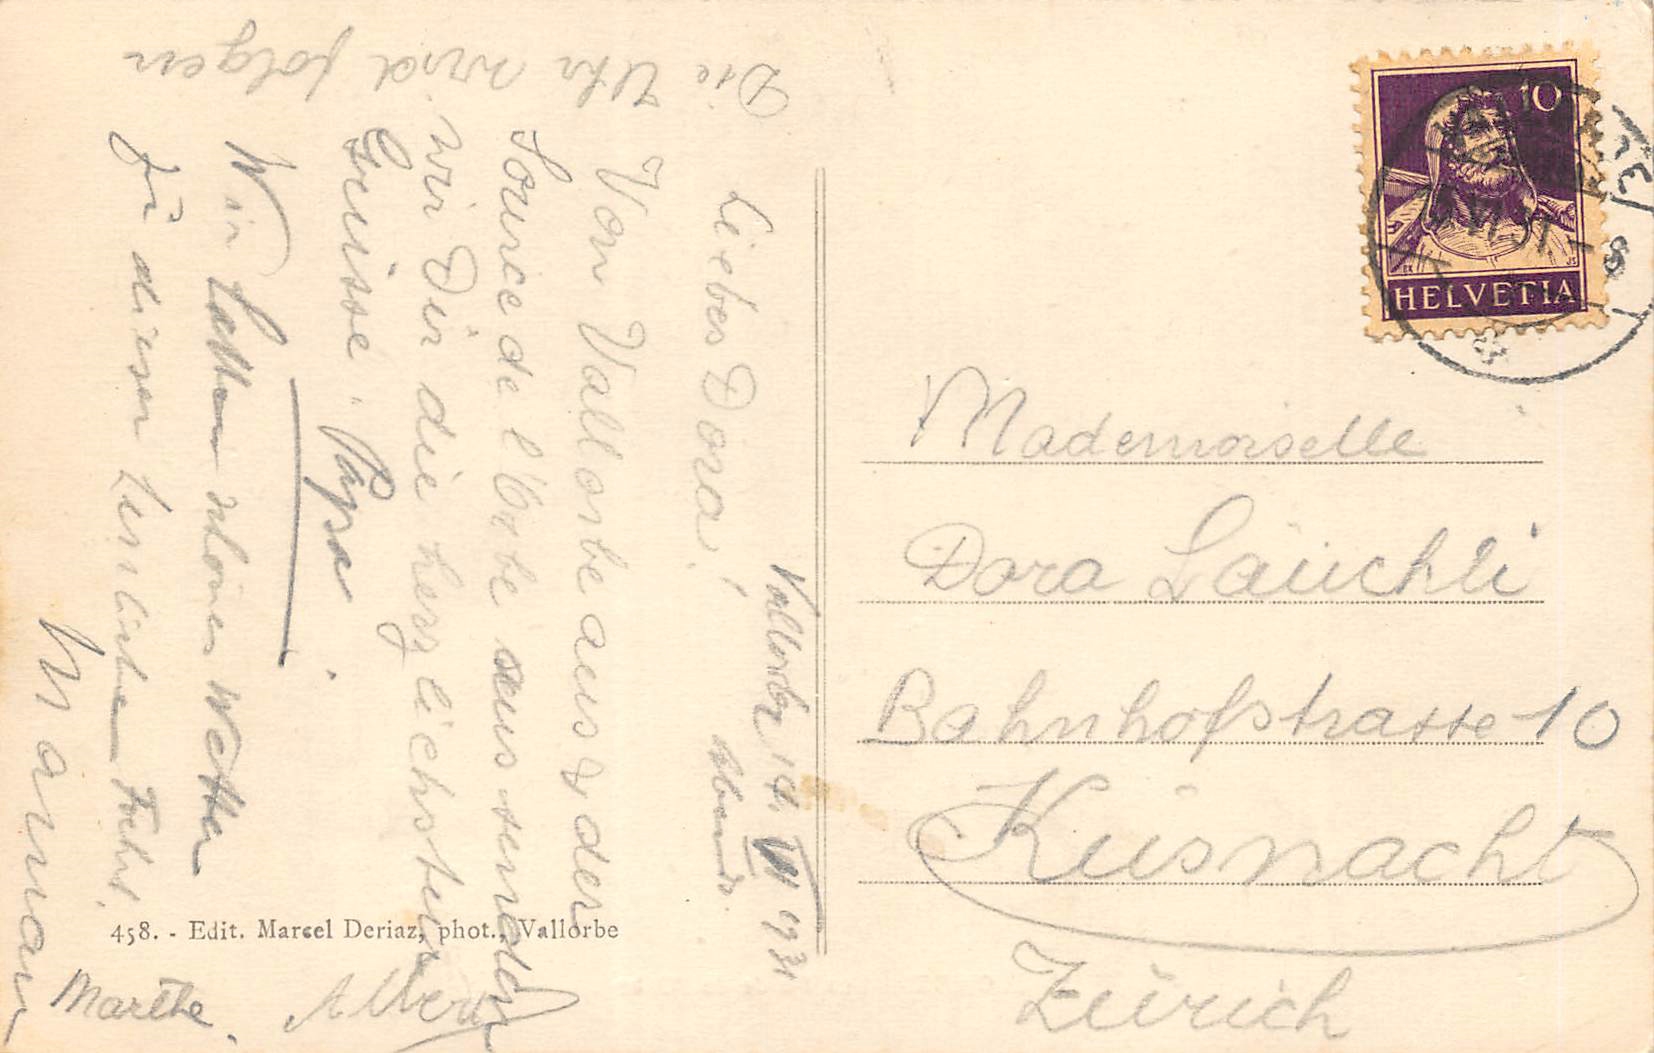 Vallorbe 14. VI 1931
abends.
Liebes Dora!
Von Vallorbe aus & der
Source de l'Orbe aus senden
wir Dir die herzlichsten
Grüsse. Papa.
Wir hatten schönes Wetter
zu dieser herrlichen Fahrt.
Maman
Marthe.
Albert
Die Uhr wird folgen
458. - Edit. Marcel Deriaz, phot., Vallorbe
10
HELVETIA
Mademoiselle
Dora Läuchli
Bahnhofstrasse 10
Küsnacht
Zürich